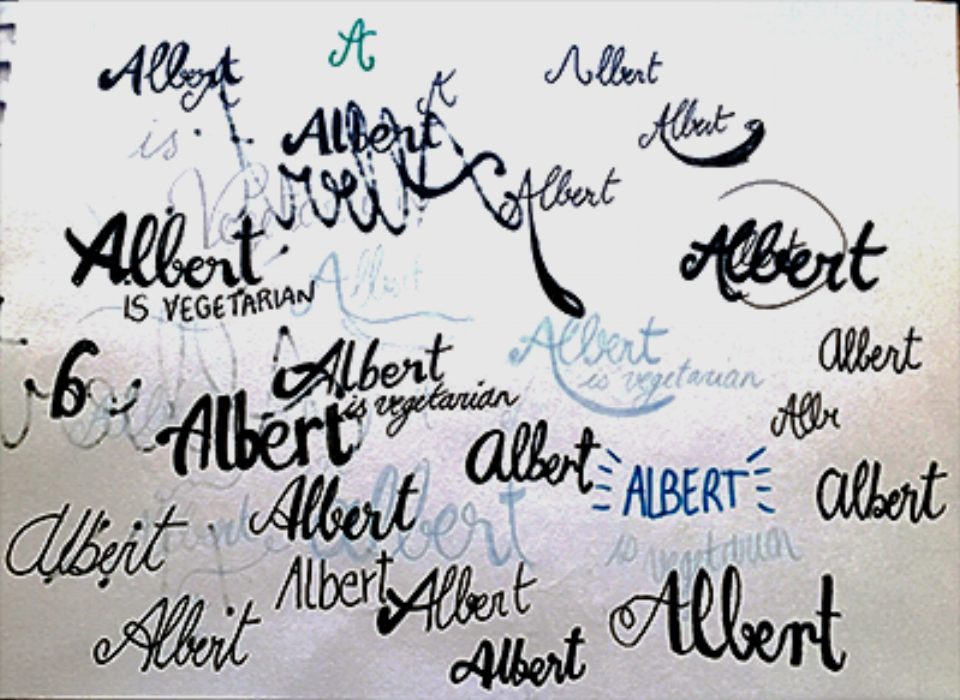 A
Albert
Albert
Albert
Albert
is
Albert
Albert
Albert
IS VEGETARIAN
Albert
Albert
Albert
is vegetarian
Albert
Albert
is vegetarian
6
Albert
Albr
Albert
ALBERT
Albert
Albert
Albert
Albert
is vegetarian
Albert
Albert
Albert
Albert
Albert